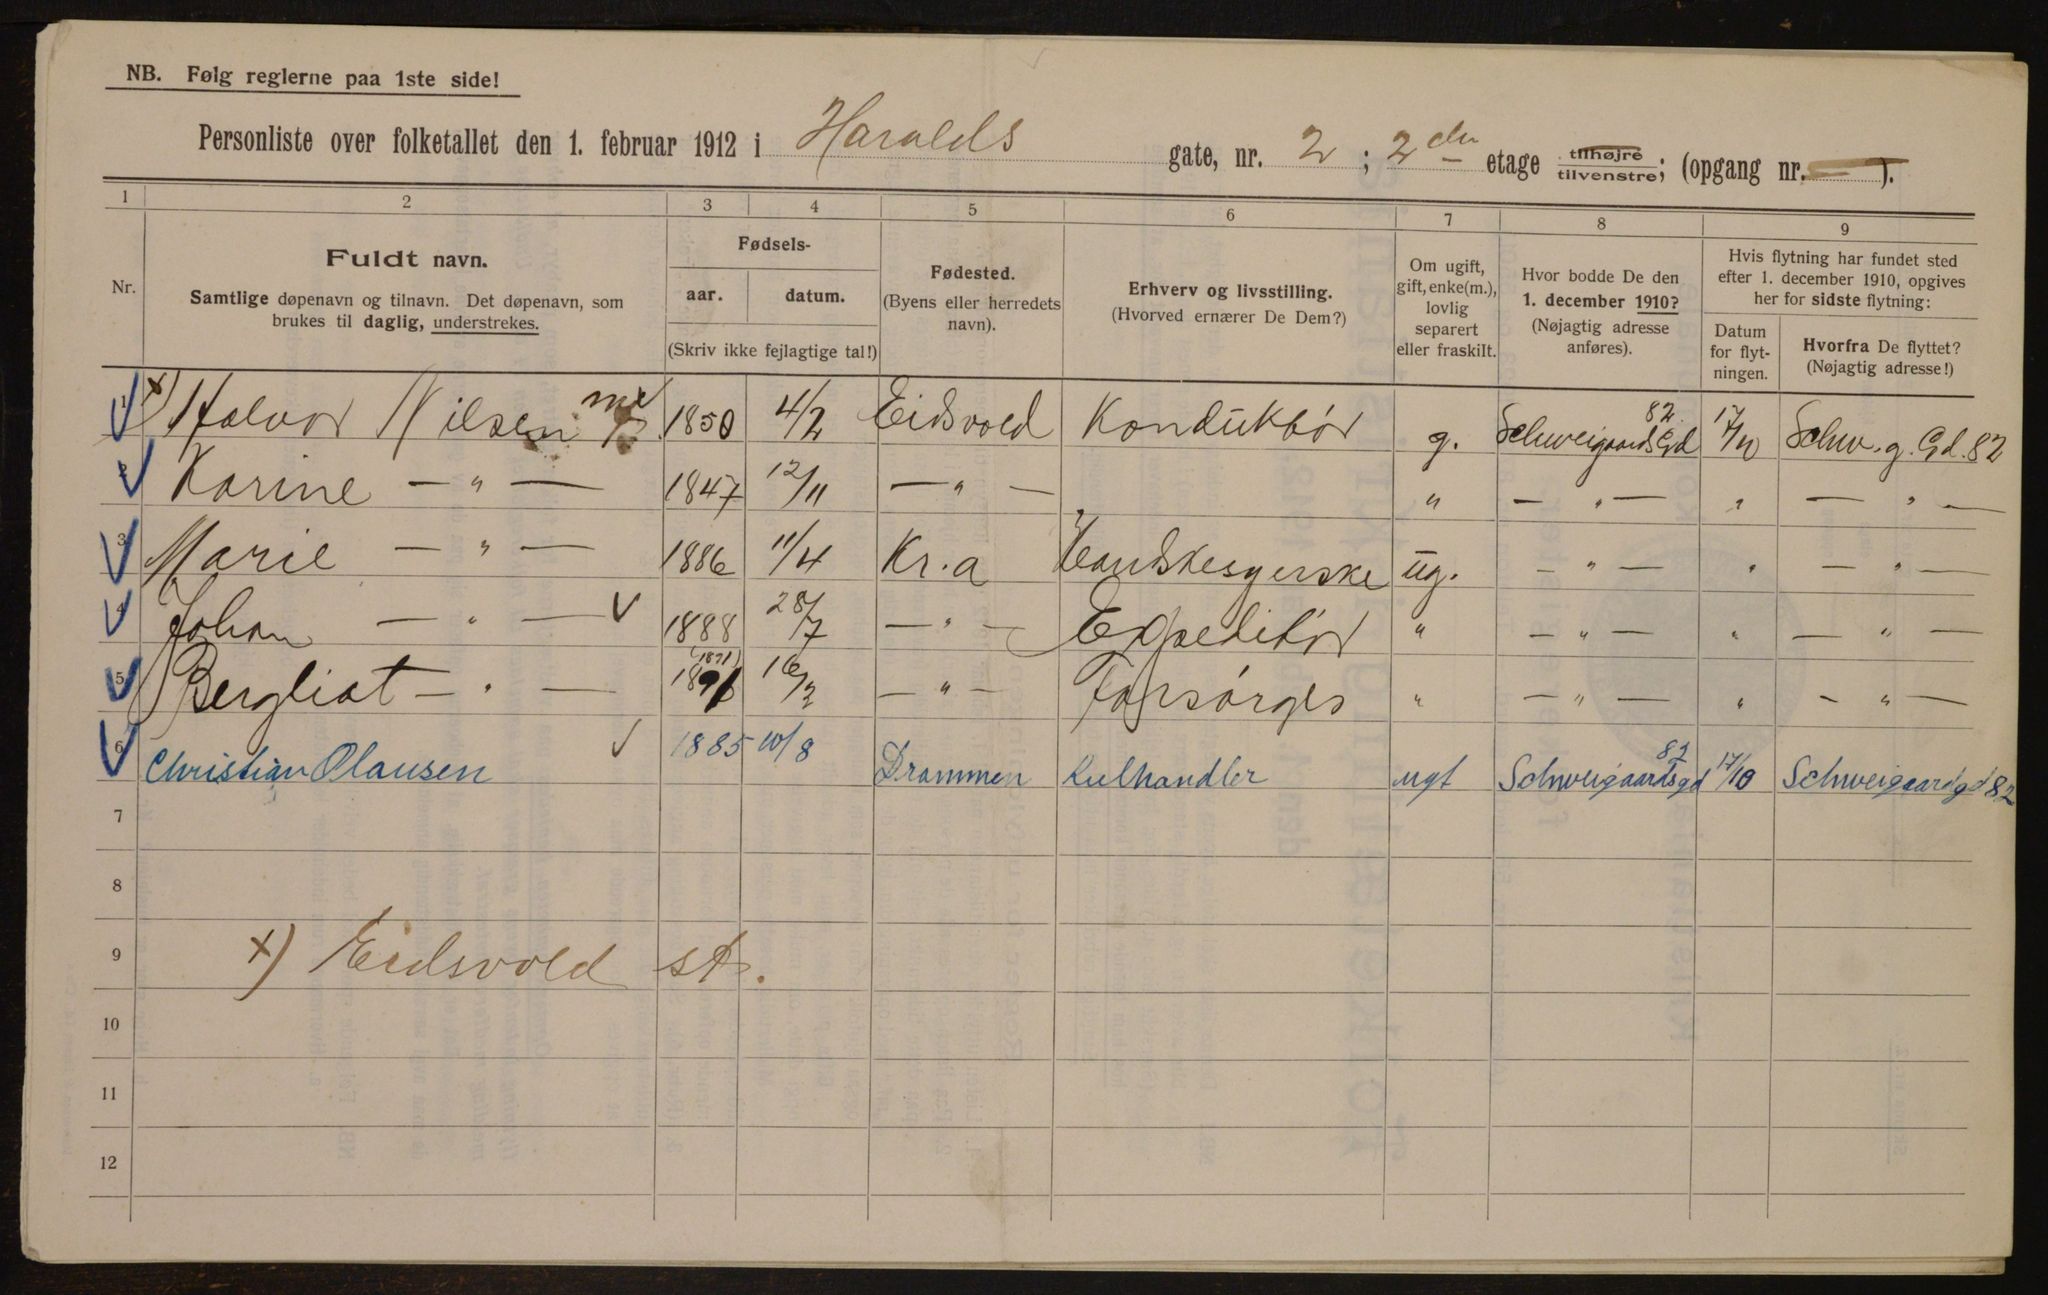 NB. Følg reglerne paa 1ste side!
Personliste over folketallet den 1. februar 1912 i Haralds gate, nr. 2 ; 2den etage tilhøjre tilvenstre; (opgang nr. — ).
1 2 3 4 5 6 7 8 9
Nr.
Fuldt navn.
Samtlige døpenavn og tilnavn. Det døpenavn, som
brukes til daglig, understrekes.
Fødsels-
aar. datum.
(Skriv ikke fejlagtige tal!)
Fødested.
(Byens eller herredets
navn).
Erhverv og livsstilling.
(Hvorved ernærer De Dem?)
Om ugift,
gift, enke(m.),
lovlig
separert
eller fraskilt.
Hvor bodde De den
1. december 1910?
(Nøjagtig adresse
anføres).
Hvis flytning har fundet sted
efter 1. december 1910, opgives
her for sidste flytning:
Datum
for flyt-
ningen.
Hvorfra De flyttet?
(Nøjagtig adresse!)
1 x) Halvor Nilsen 1850 4/2 Eidsvold Konduktör g. Schweigaards Gd 82 17/10 Schw. g. Gd. 82
2 Karine — „ — 1847 12/11 — „ — „ — „ — „ — „ —
3 Marie — „ — 1886 11/4 Kr.a Handskesyerske ug. — „ — „ — „ —
4 Johan — „ — 1888 28/7 — „ — Expeditör „ — „ — „ — „ —
5 Bergliot — „ — 1891 (1891) 16/2 — „ — Forsørges „ — „ — „ — „ —
6 Christian Olausen 1885 10/8 Drammen Kulhandler ugt Schweigaardsgd 82 17/10 Schweigaardgd 82
7
8
9 x) Eidsvold st.
10
11
12